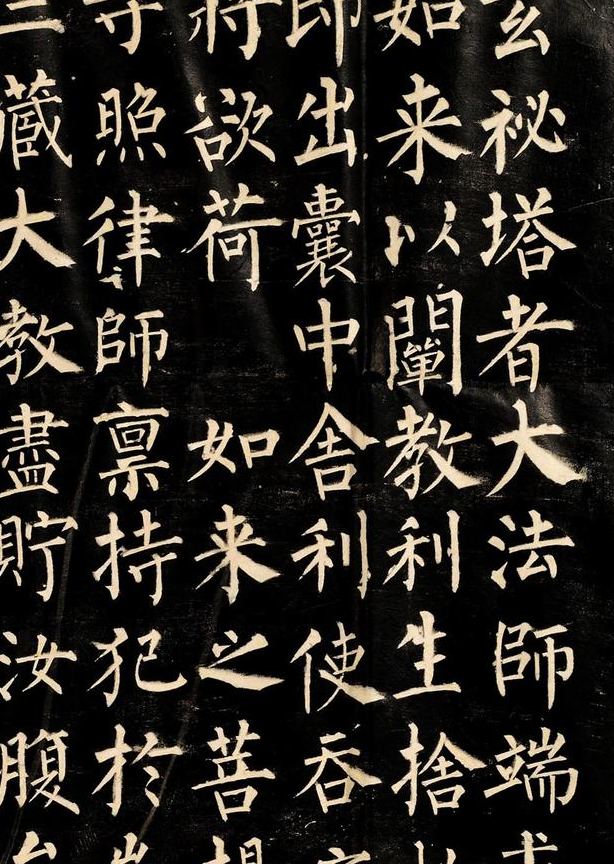 玄祕塔者大法師端
如来以闡教利生捨
即出囊中舍利使吞
将欲荷如来之菩
寺照律師禀持犯於
三藏大教盡貯汝腹